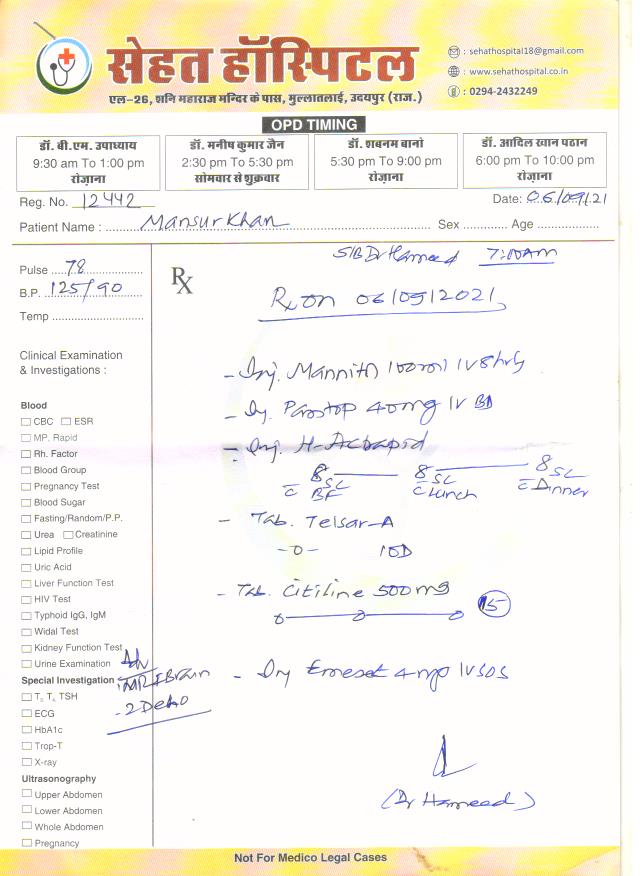 सेहत हॉस्पिटल
एल-26, शनि महाराज मन्दिर के पास, मुल्लातलाई, उदयपुर (राज.)
: sehathospital18@gmail.com
: www.sehathospital.co.in
: 0294-2432249
OPD TIMING
डॉ. बी.एम. उपाध्याय
9:30 am To 1:00 pm
रोज़ाना
डॉ. मनीष कुमार जैन
2:30 pm To 5:30 pm
सोमवार से शुक्रवार
डॉ. शबनम बानो
5:30 pm To 9:00 pm
रोज़ाना
डॉ. आदिल खान पठान
6:00 pm To 10:00 pm
रोज़ाना
Reg. No. 12442
Date: 06/09/21
Patient Name : Mansur Khan Sex ........... Age ...................
S/B Dr Hameed 7:00AM
Pulse ....78
B.P. 125/90
Temp
Rx
Rx on 06/09/2021
Clinical Examination
& Investigations :
- Inj. Mannitol 100ml IV 8hrly
- Inj. Pantop 40mg IV BD
- Inj. H-Actrapid
8 SC 8 SC 8 SC
c BF c Lunch c Dinner
- Tab. Telsar-A
-0- 10D
- Tab. Citiline 500mg
15
- Inj Emeset 4mg IV SOS
(Dr Hameed)
Blood
CBC ESR
MP. Rapid
Rh. Factor
Blood Group
Pregnancy Test
Blood Sugar
Fasting/Random/P.P.
Urea Creatinine
Lipid Profile
Uric Acid
Liver Function Test
HIV Test
Typhoid IgG, IgM
Widal Test
Kidney Function Test
Urine Examination
Adv
Special Investigation :
MRI Brain
- 2D Echo
T₃, T₄, TSH
ECG
HbA1c
Trop-T
X-ray
Ultrasonography
Upper Abdomen
Lower Abdomen
Whole Abdomen
Pregnancy
Not For Medico Legal Cases